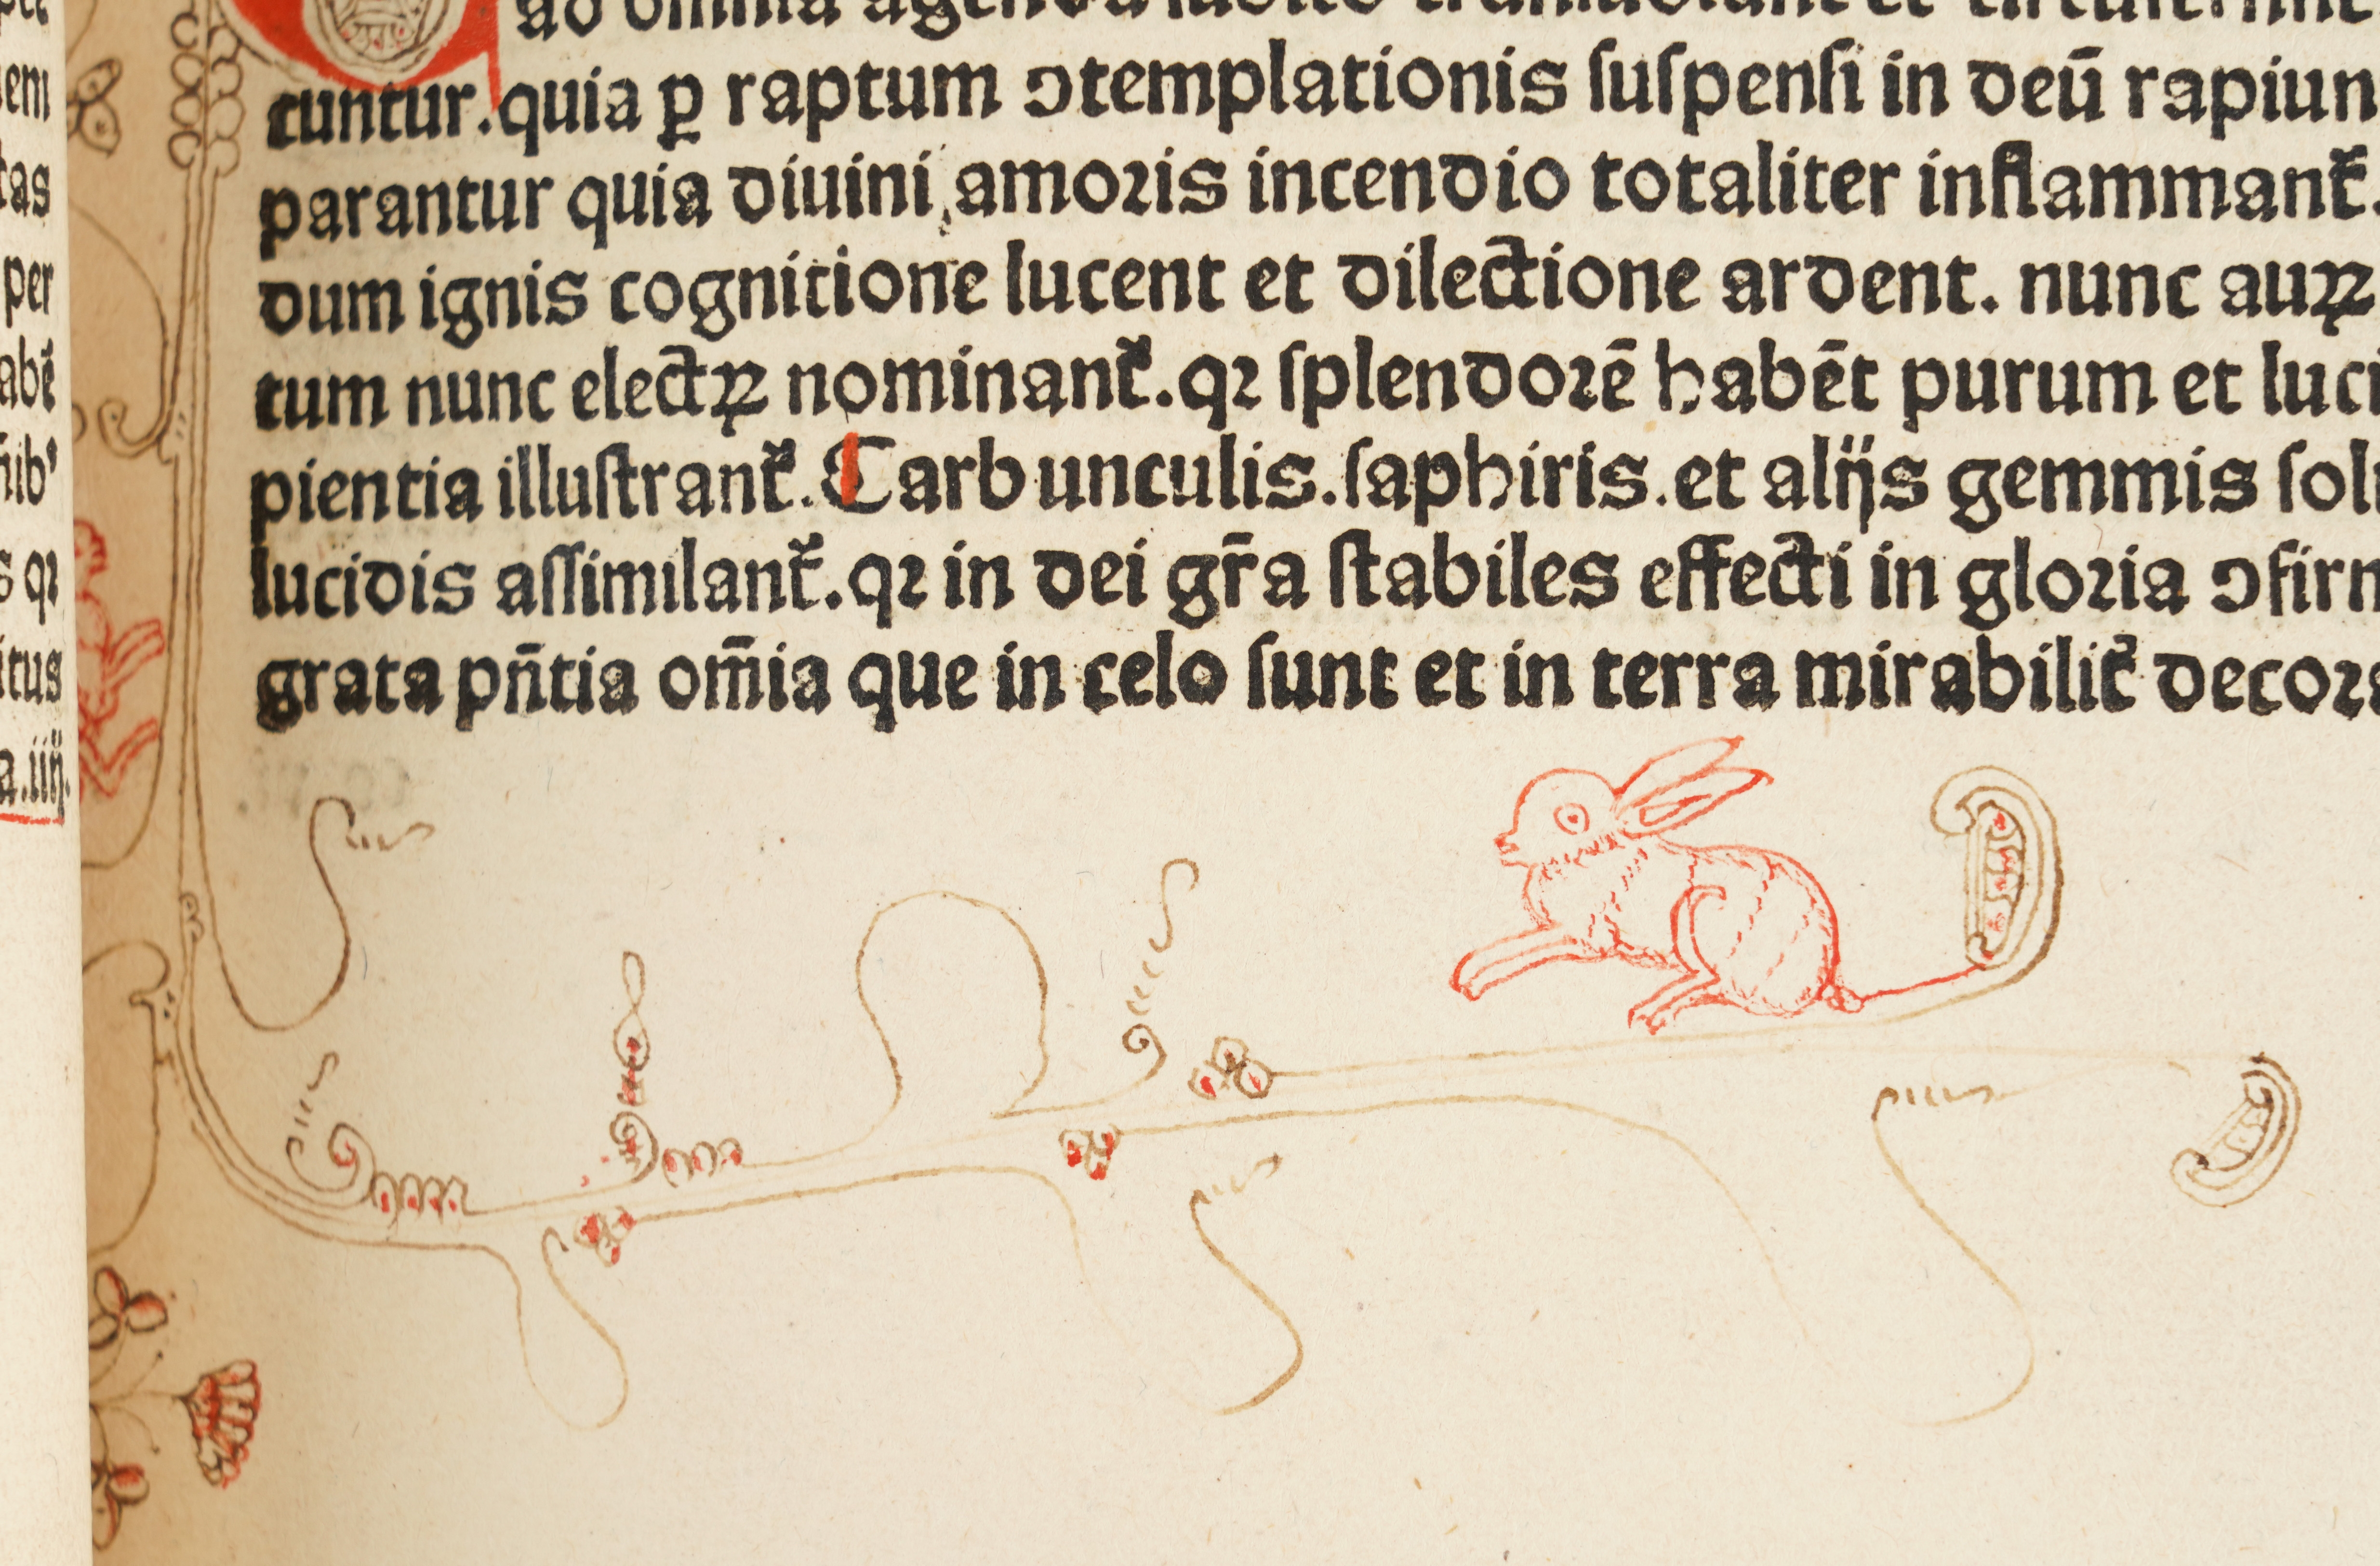 em
tas
per
abē
nib⁹
s qꝛ
itus
a.iiij.
ad omnia agenda subito
cuntur.quia ꝑ raptum ↄtemplationis ſuſpenſi in deū rapiun
parantur quia diuini amoꝛis incendio totaliter inflammant᷑.
dum ignis cognitione lucent et dilectione ardent. nunc auꝝ
tum nunc electꝝ nominant᷑.qꝛ ſplendoꝛē habēt purum et luci
pientia illuſtrant᷑.Carbunculis.ſaphiris.et alijs gemmis ſoli
lucidis aſſimilant᷑.qꝛ in dei gr̄a ſtabiles effecti in gloꝛia ↄfirm
grata pn̄tia om̄ia que in celo ſunt et in terra mirabilit᷑ decoꝛa